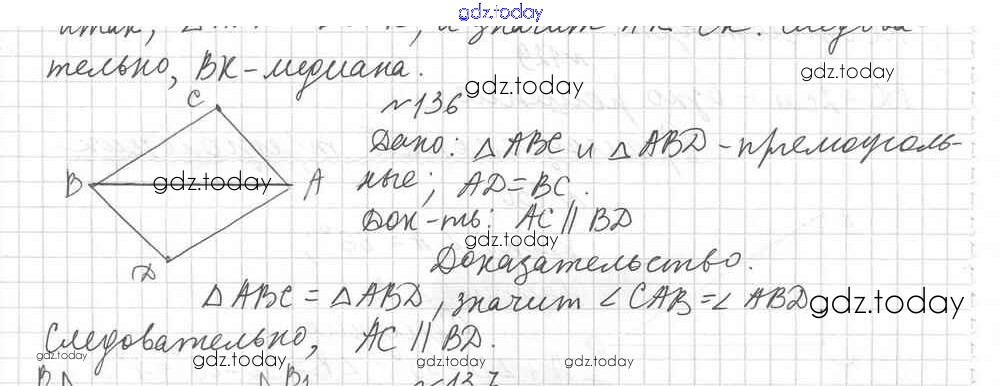 gdz.today
тельно, BK - медиана.
gdz.today
gdz.today
№136
C
Дано: △ABC и △ABD - прямоуголь-
B
gdz.today
A
ные; AD = BC.
gdz.today
Док-ть: AC || BD
gdz.today
D
Доказательство.
△ABC = △ABD, значит ∠CAB = ∠ABD
gdz.today
Следовательно, AC || BD.
gdz.today gdz.today gdz.today gdz.today
№137